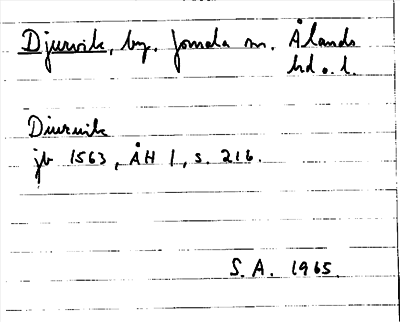 Djurvik, by. Jomala sn. Ålands
hd o. l.
Diurvik
jb 1563, ÅH 1, s. 216.
S. A. 1965.